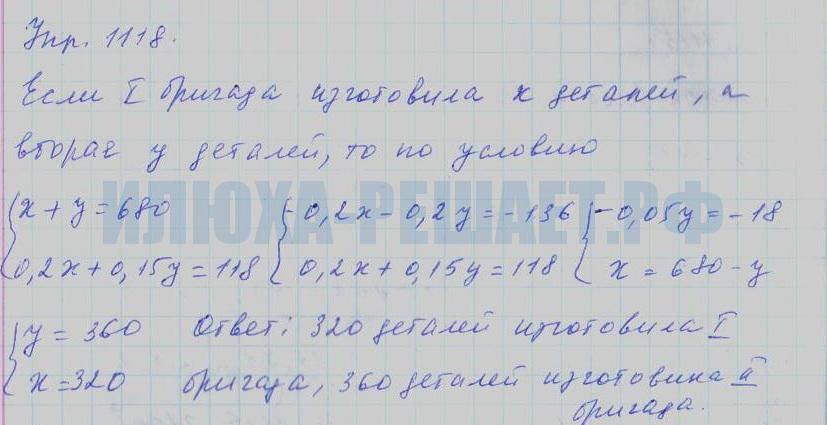 Упр. 1118.
Если I бригада изготовила x деталей, а
вторая y деталей, то по условию
ИЛЮХА-РЕШАЕТ.РФ
{x + y = 680 {-0,2x - 0,2y = -136 {-0,05y = -18
{0,2x + 0,15y = 118 {0,2x + 0,15y = 118 {x = 680 - y
{y = 360 Ответ: 320 деталей изготовила I
{x = 320 бригада, 360 деталей изготовила II
бригада.